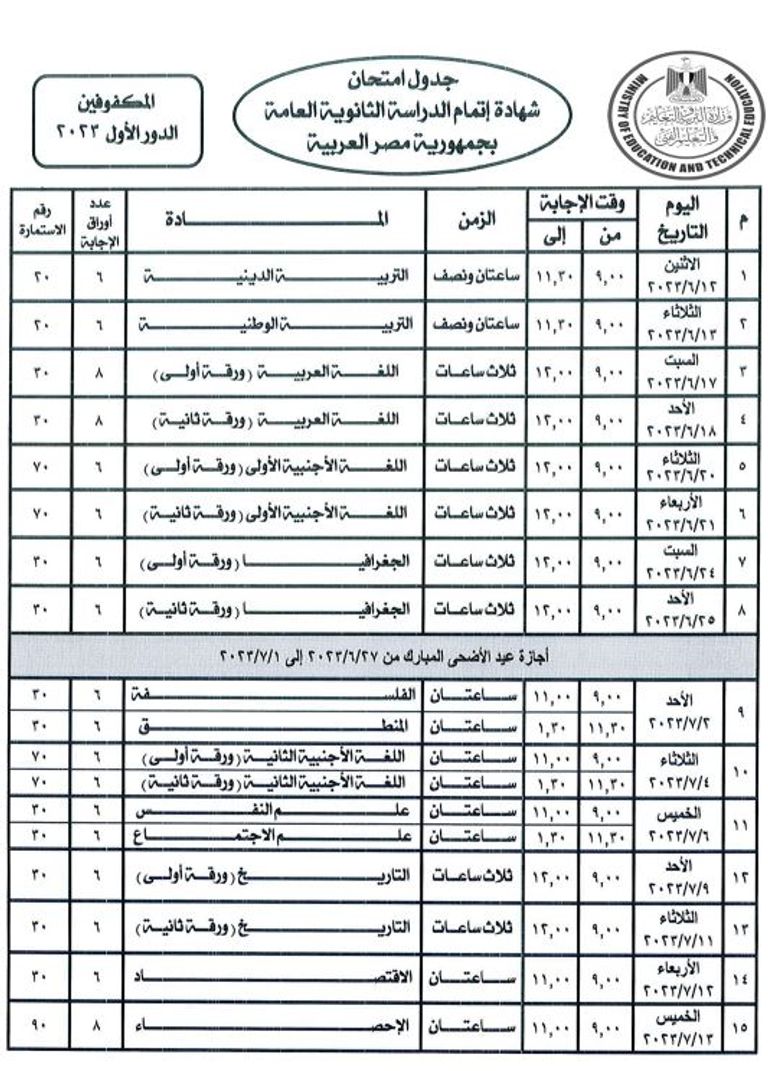 جدول امتحان
شهادة إتمام الدراسة الثانوية العامة
بجمهورية مصر العربية
المكفوفين
الدور الأول ٢٠٢٣
MINISTRY OF EDUCATION AND TECHNICAL EDUCATION
وزارة التربية والتعليم
والتعليم الفني
م | اليوم التاريخ | وقت الإجابة من | إلى | الزمن | المـــادة | عدد أوراق الإجابة | رقم الاستمارة
١ | الاثنين ٢٠٢٣/٦/١٢ | ٩,٠٠ | ١١,٣٠ | ساعتان ونصف | التربية الدينية | ٦ | ٢٠
٢ | الثلاثاء ٢٠٢٣/٦/١٣ | ٩,٠٠ | ١١,٣٠ | ساعتان ونصف | التربية الوطنية | ٦ | ٢٠
٣ | السبت ٢٠٢٣/٦/١٧ | ٩,٠٠ | ١٢,٠٠ | ثلاث ساعات | اللغة العربية (ورقة أولى) | ٨ | ٣٠
٤ | الأحد ٢٠٢٣/٦/١٨ | ٩,٠٠ | ١٢,٠٠ | ثلاث ساعات | اللغة العربية (ورقة ثانية) | ٨ | ٣٠
٥ | الثلاثاء ٢٠٢٣/٦/٢٠ | ٩,٠٠ | ١٢,٠٠ | ثلاث ساعات | اللغة الأجنبية الأولى (ورقة أولى) | ٦ | ٧٠
٦ | الأربعاء ٢٠٢٣/٦/٢١ | ٩,٠٠ | ١٢,٠٠ | ثلاث ساعات | اللغة الأجنبية الأولى (ورقة ثانية) | ٦ | ٧٠
٧ | السبت ٢٠٢٣/٦/٢٤ | ٩,٠٠ | ١٢,٠٠ | ثلاث ساعات | الجغرافيا (ورقة أولى) | ٦ | ٣٠
٨ | الأحد ٢٠٢٣/٦/٢٥ | ٩,٠٠ | ١٢,٠٠ | ثلاث ساعات | الجغرافيا (ورقة ثانية) | ٦ | ٣٠
أجازة عيد الأضحى المبارك من ٢٠٢٣/٦/٢٧ إلى ٢٠٢٣/٧/١
٩ | الأحد ٢٠٢٣/٧/٢ | ٩,٠٠ | ١١,٠٠ | ساعتان | الفلسفة | ٦ | ٣٠
١١,٣٠ | ١,٣٠ | ساعتان | المنطق | ٦ | ٣٠
١٠ | الثلاثاء ٢٠٢٣/٧/٤ | ٩,٠٠ | ١١,٠٠ | ساعتان | اللغة الأجنبية الثانية (ورقة أولى) | ٦ | ٧٠
١١,٣٠ | ١,٣٠ | ساعتان | اللغة الأجنبية الثانية (ورقة ثانية) | ٦ | ٧٠
١١ | الخميس ٢٠٢٣/٧/٦ | ٩,٠٠ | ١١,٠٠ | ساعتان | علم النفس | ٦ | ٣٠
١١,٣٠ | ١,٣٠ | ساعتان | علم الاجتماع | ٦ | ٣٠
١٢ | الأحد ٢٠٢٣/٧/٩ | ٩,٠٠ | ١٢,٠٠ | ثلاث ساعات | التاريخ (ورقة أولى) | ٦ | ٣٠
١٣ | الثلاثاء ٢٠٢٣/٧/١١ | ٩,٠٠ | ١٢,٠٠ | ثلاث ساعات | التاريخ (ورقة ثانية) | ٦ | ٣٠
١٤ | الأربعاء ٢٠٢٣/٧/١٢ | ٩,٠٠ | ١١,٠٠ | ساعتان | الاقتصاد | ٦ | ٣٠
١٥ | الخميس ٢٠٢٣/٧/١٣ | ٩,٠٠ | ١١,٠٠ | ساعتان | الإحصاء | ٨ | ٩٠